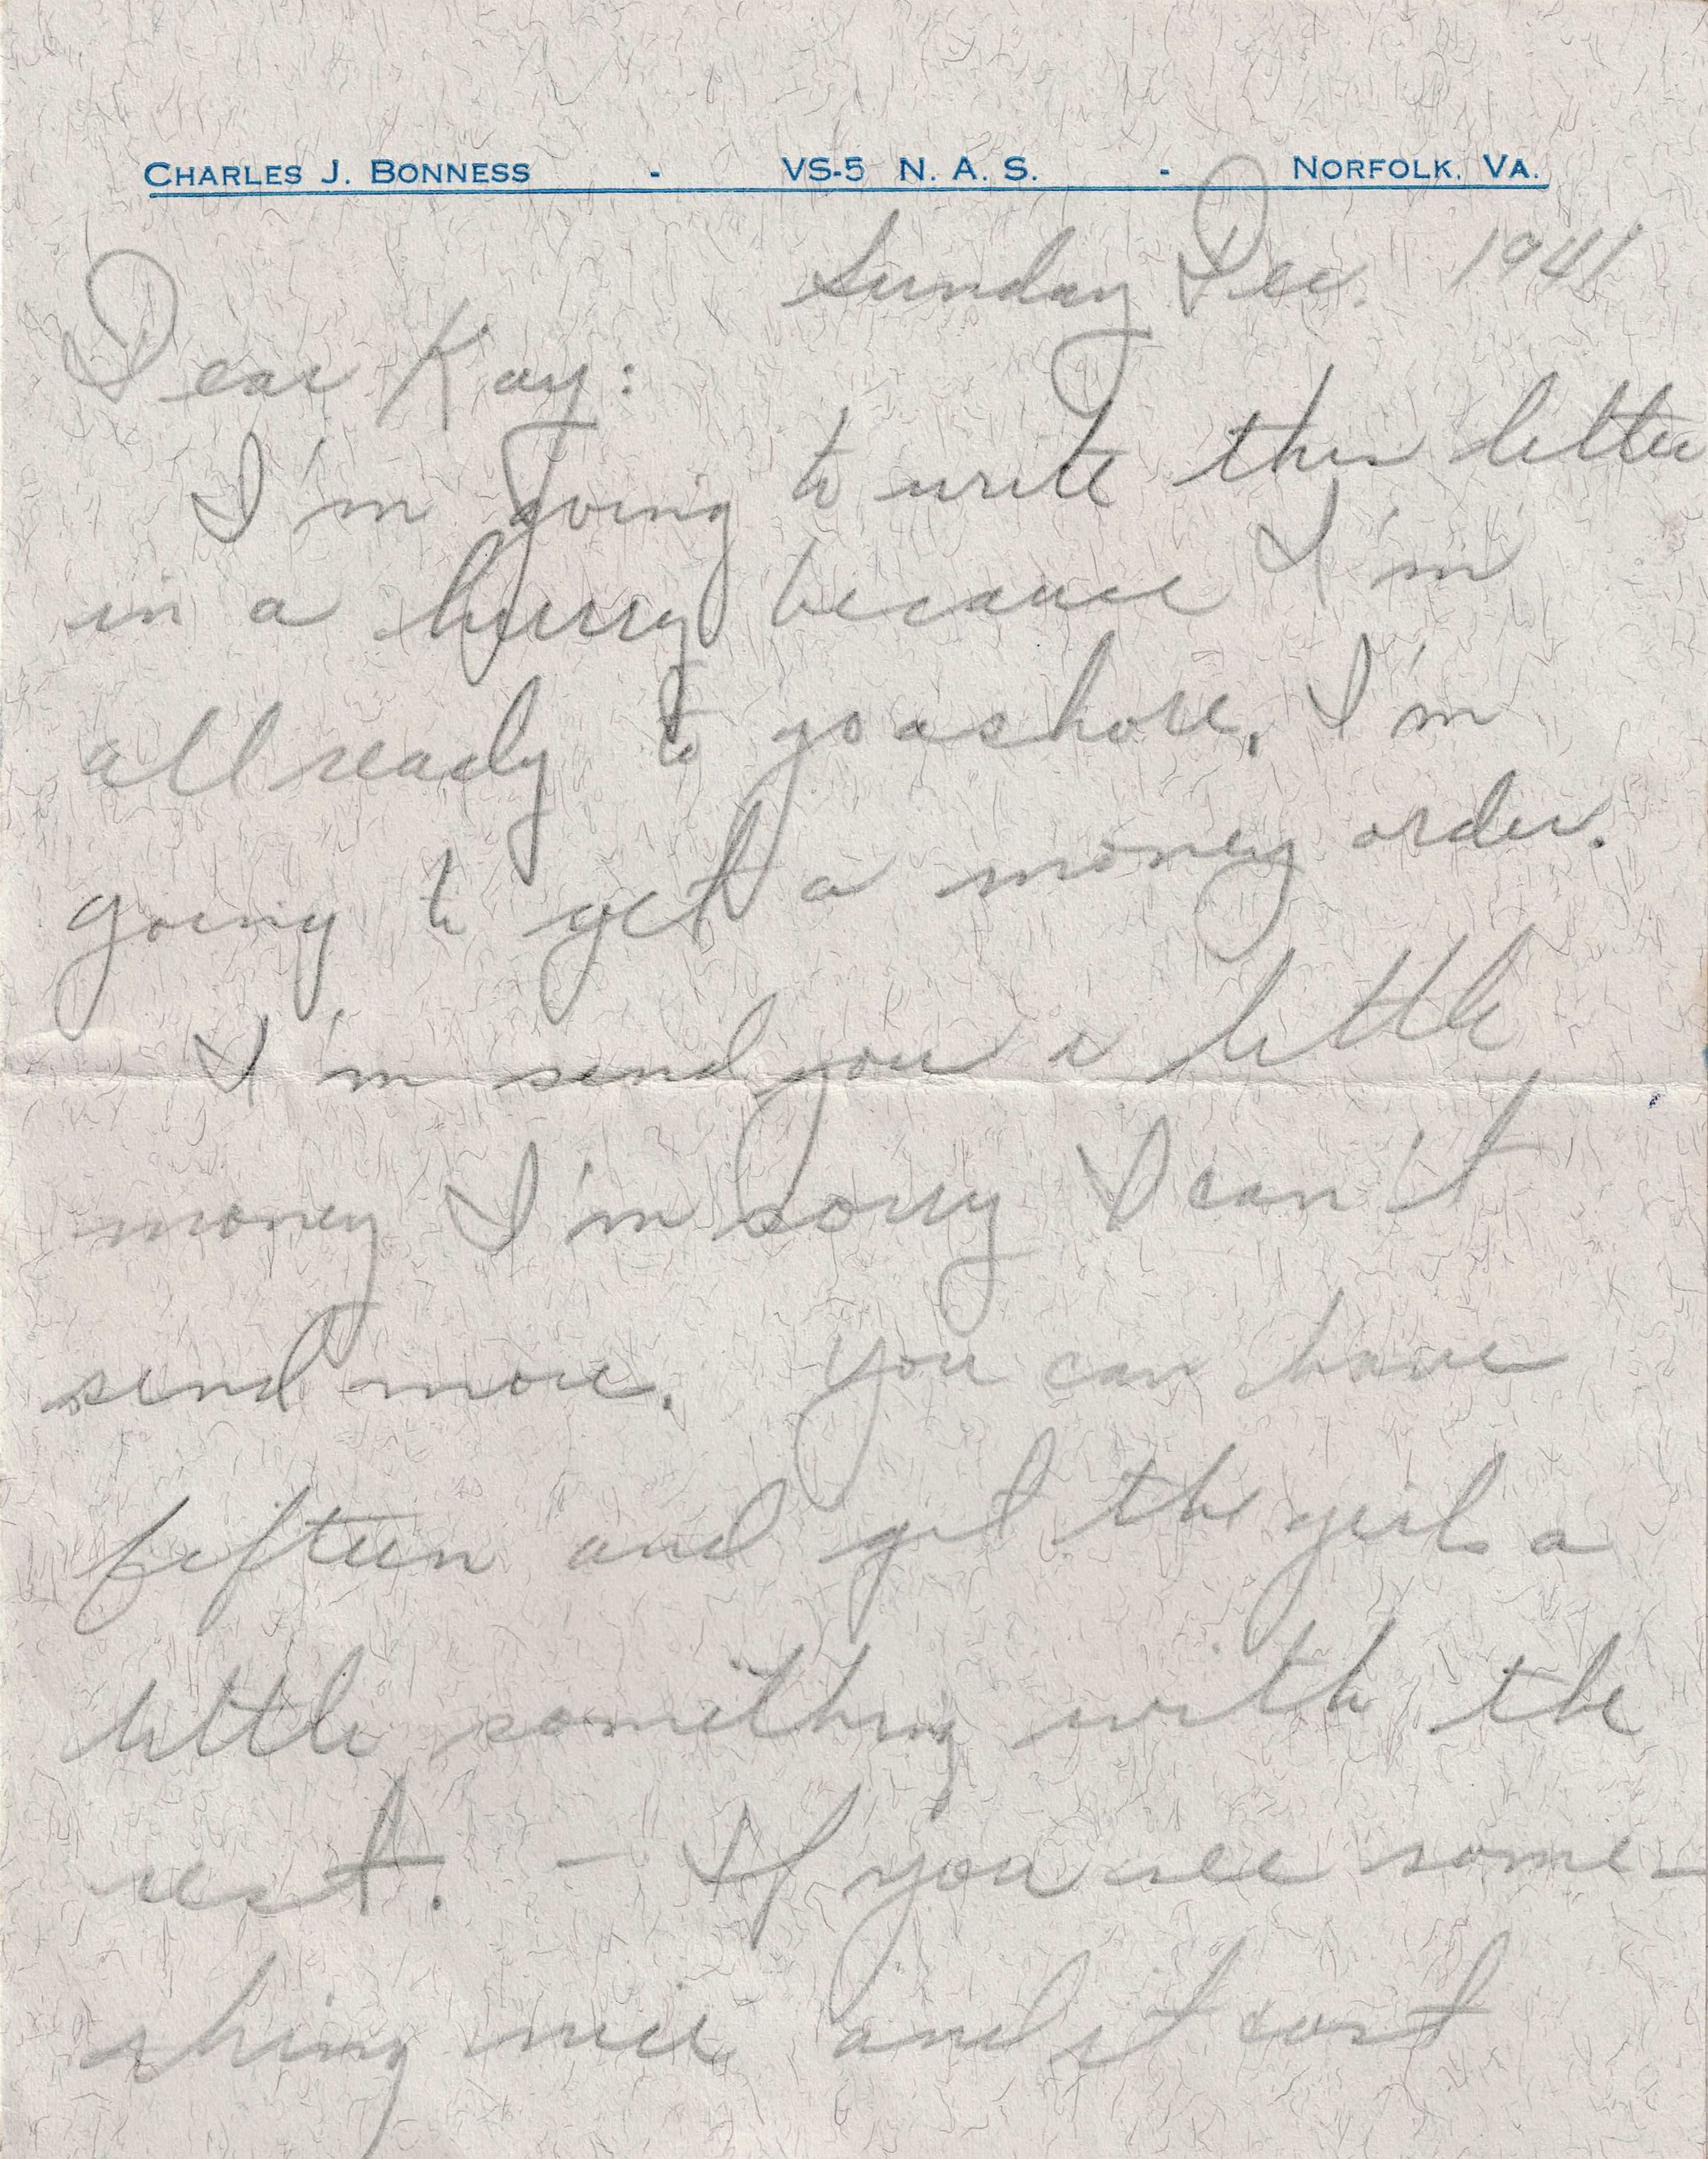 CHARLES J. BONNESS - VS-5 N. A. S. - NORFOLK, VA.
Sunday Dec. 1941
Dear Kay:
I'm going to write this letter
in a hurry because I'm
all ready to go ashore. I'm
going to get a money order.
I'm send you a little
money I'm sorry I can't
send more. You can have
fifteen and get the girls a
little something with the
rest. - If you see some-
thing nice and it cost